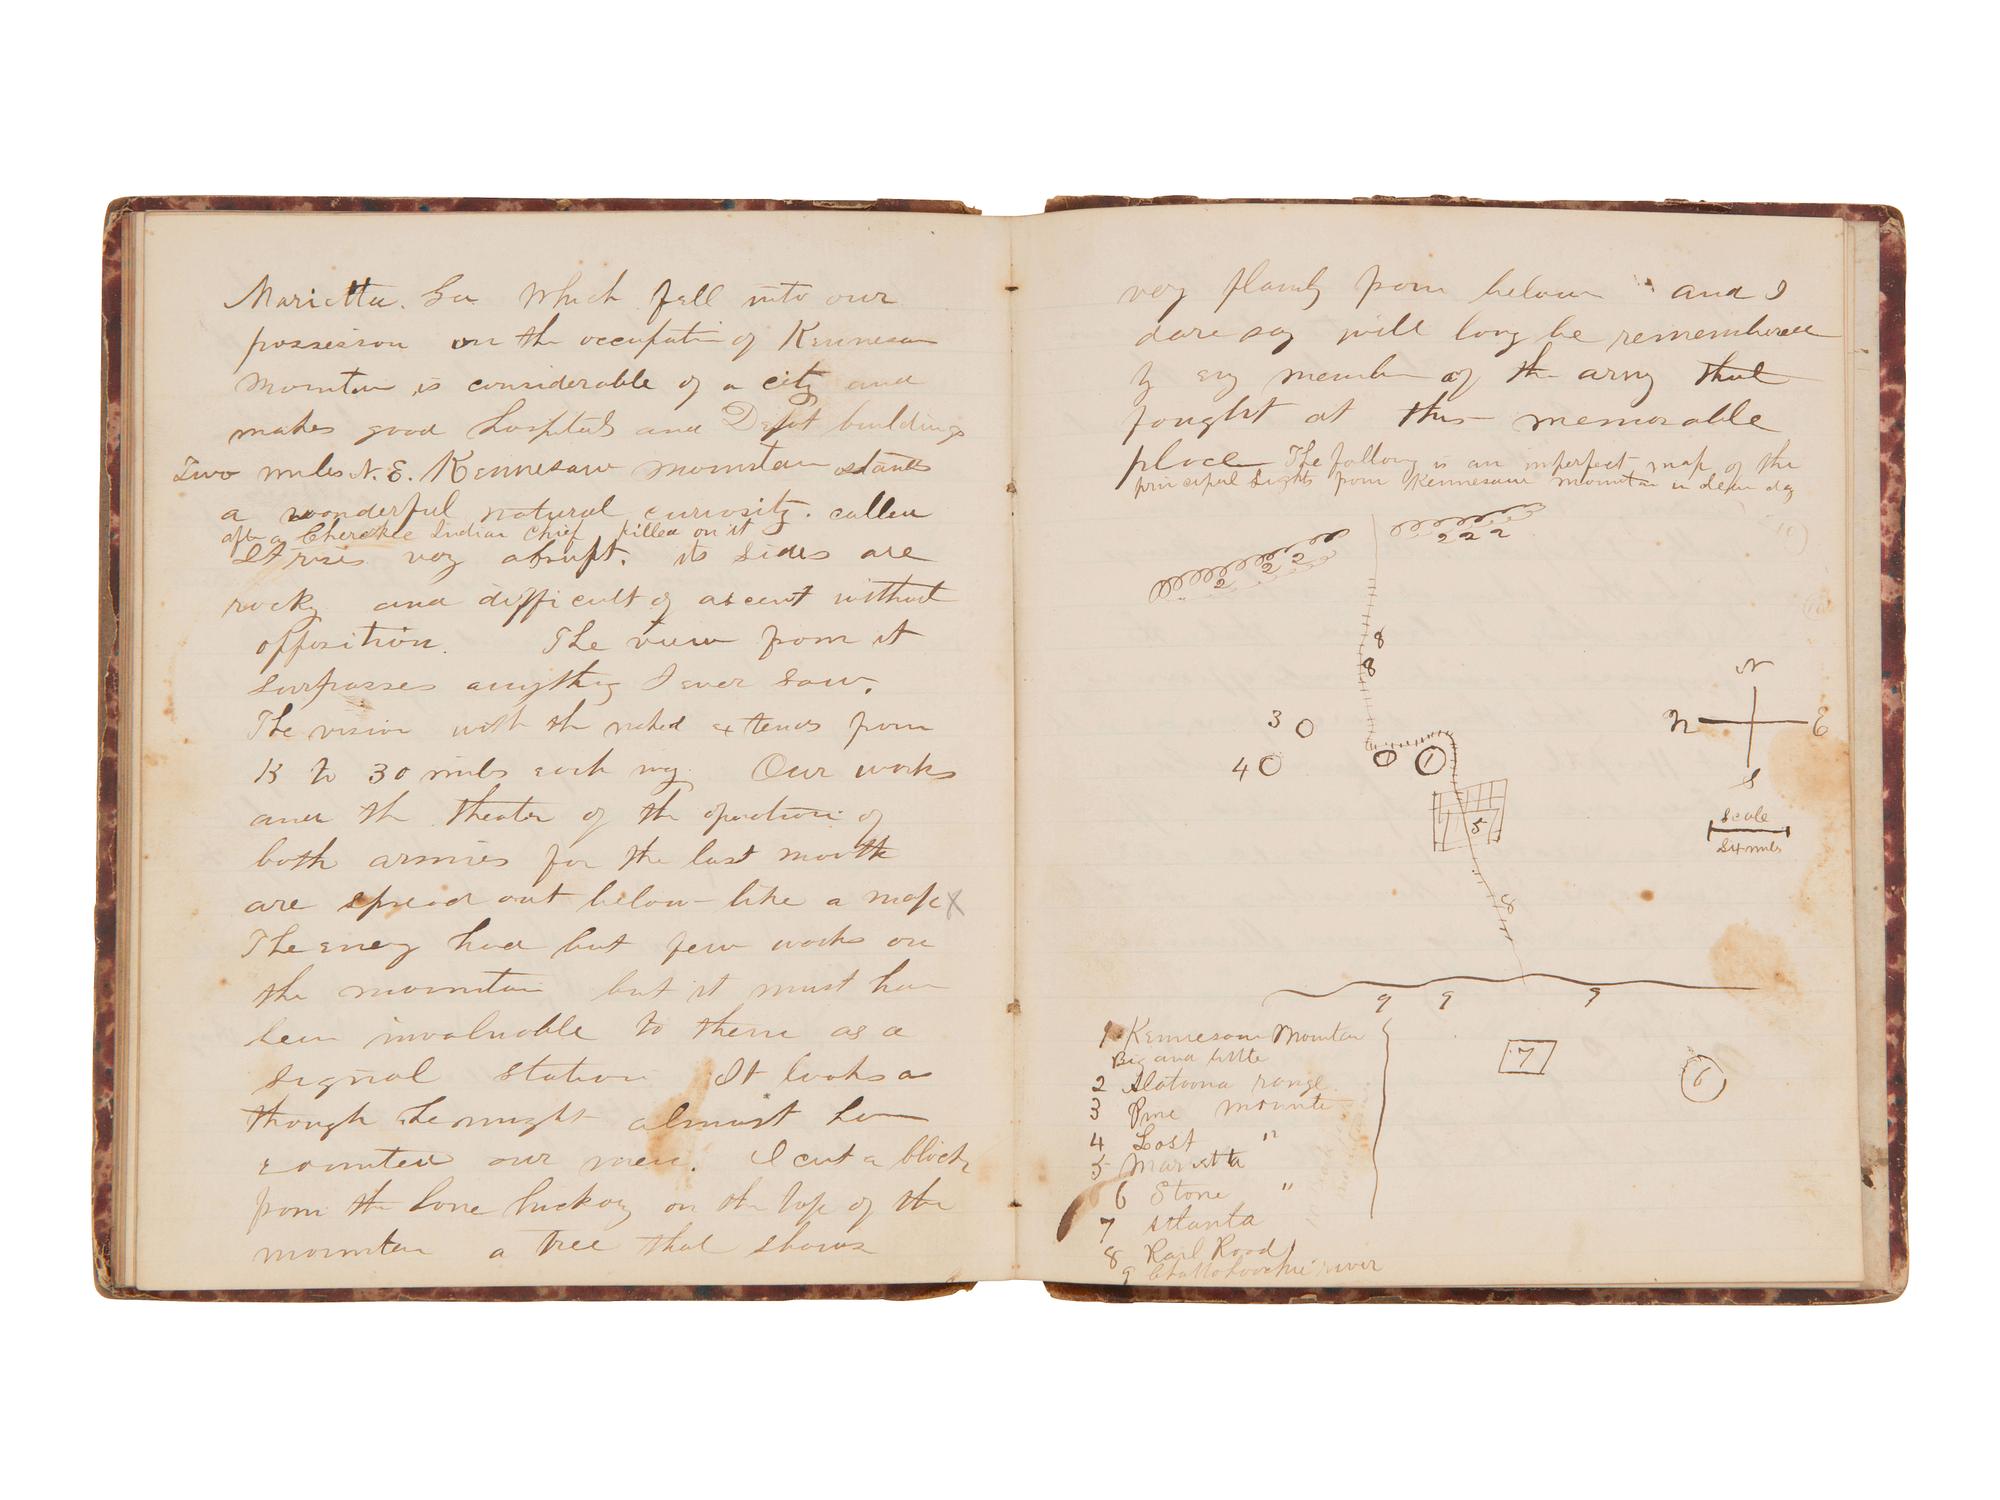 Marietta. Ga which fell into our
possession on the occupation of Kennesaw
Mountain is considerable of a city and
makes good hospitals and Depot buildings
Two miles N. E. Kennesaw mountain stands
a wonderful natural curiosity. called
after a Cherokee Indian Chief killed on it
It rises very abrupt. its sides are
rocky and difficult of ascent without
opposition. The view from it
surpasses anything I ever saw.
The vision with the naked extends from
15 to 30 miles each way. Our works
and the theater of the operations of
both armies for the last month
are spread out below like a map X
The enemy had but few works on
the mountain but it must have
been invaluable to them as a
signal station It looks as
though he might almost have
counted our men. I cut a block
from the lone hickory on the top of the
mountain a tree that shows
very plainly from below and I
dare say will long be remembered
by every member of the army that
fought at this memorable
place The following is an imperfect map of the
principal sights from Kennesaw mountain in clear day
2 2 2
2 2 2
8
8
N
3
W E
4
1 1
S
5
scale
8
9 9 9
1 Kennesaw Mountain
Big and little
7
6
2 Alatoona range
3 Pine mountain
4 Lost "
5 Marietta
6 Stone "
7 Atlanta
8 Rail Road
9 Chattahoochie river